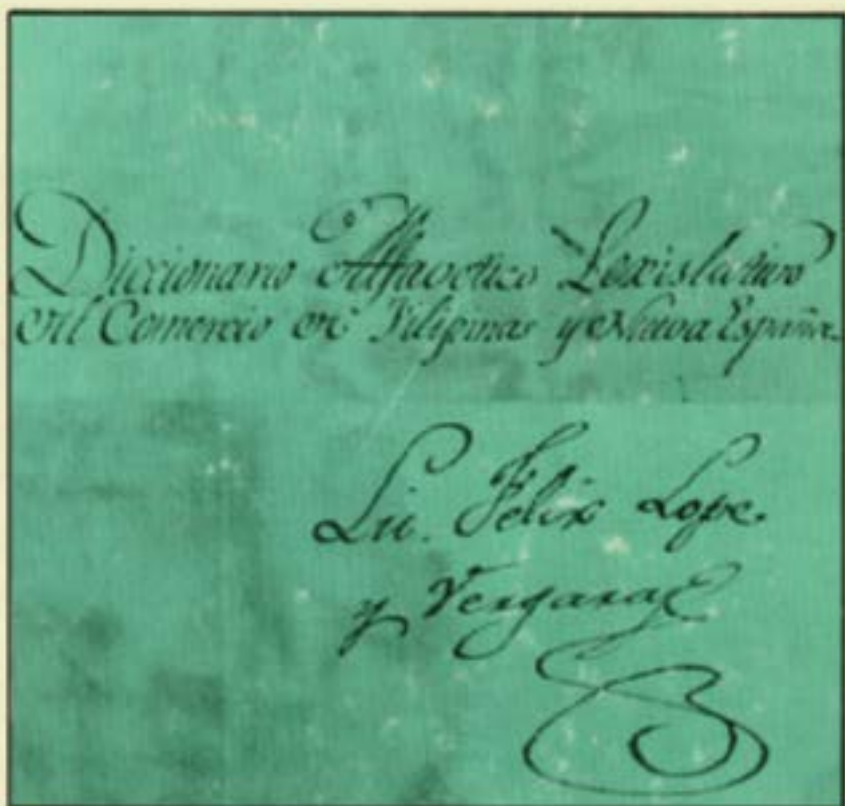 Diccionario Alfavetico Lexislativo
del Comercio de Filipinas y Nueva España
Lic. Felix Lope
y Vergara